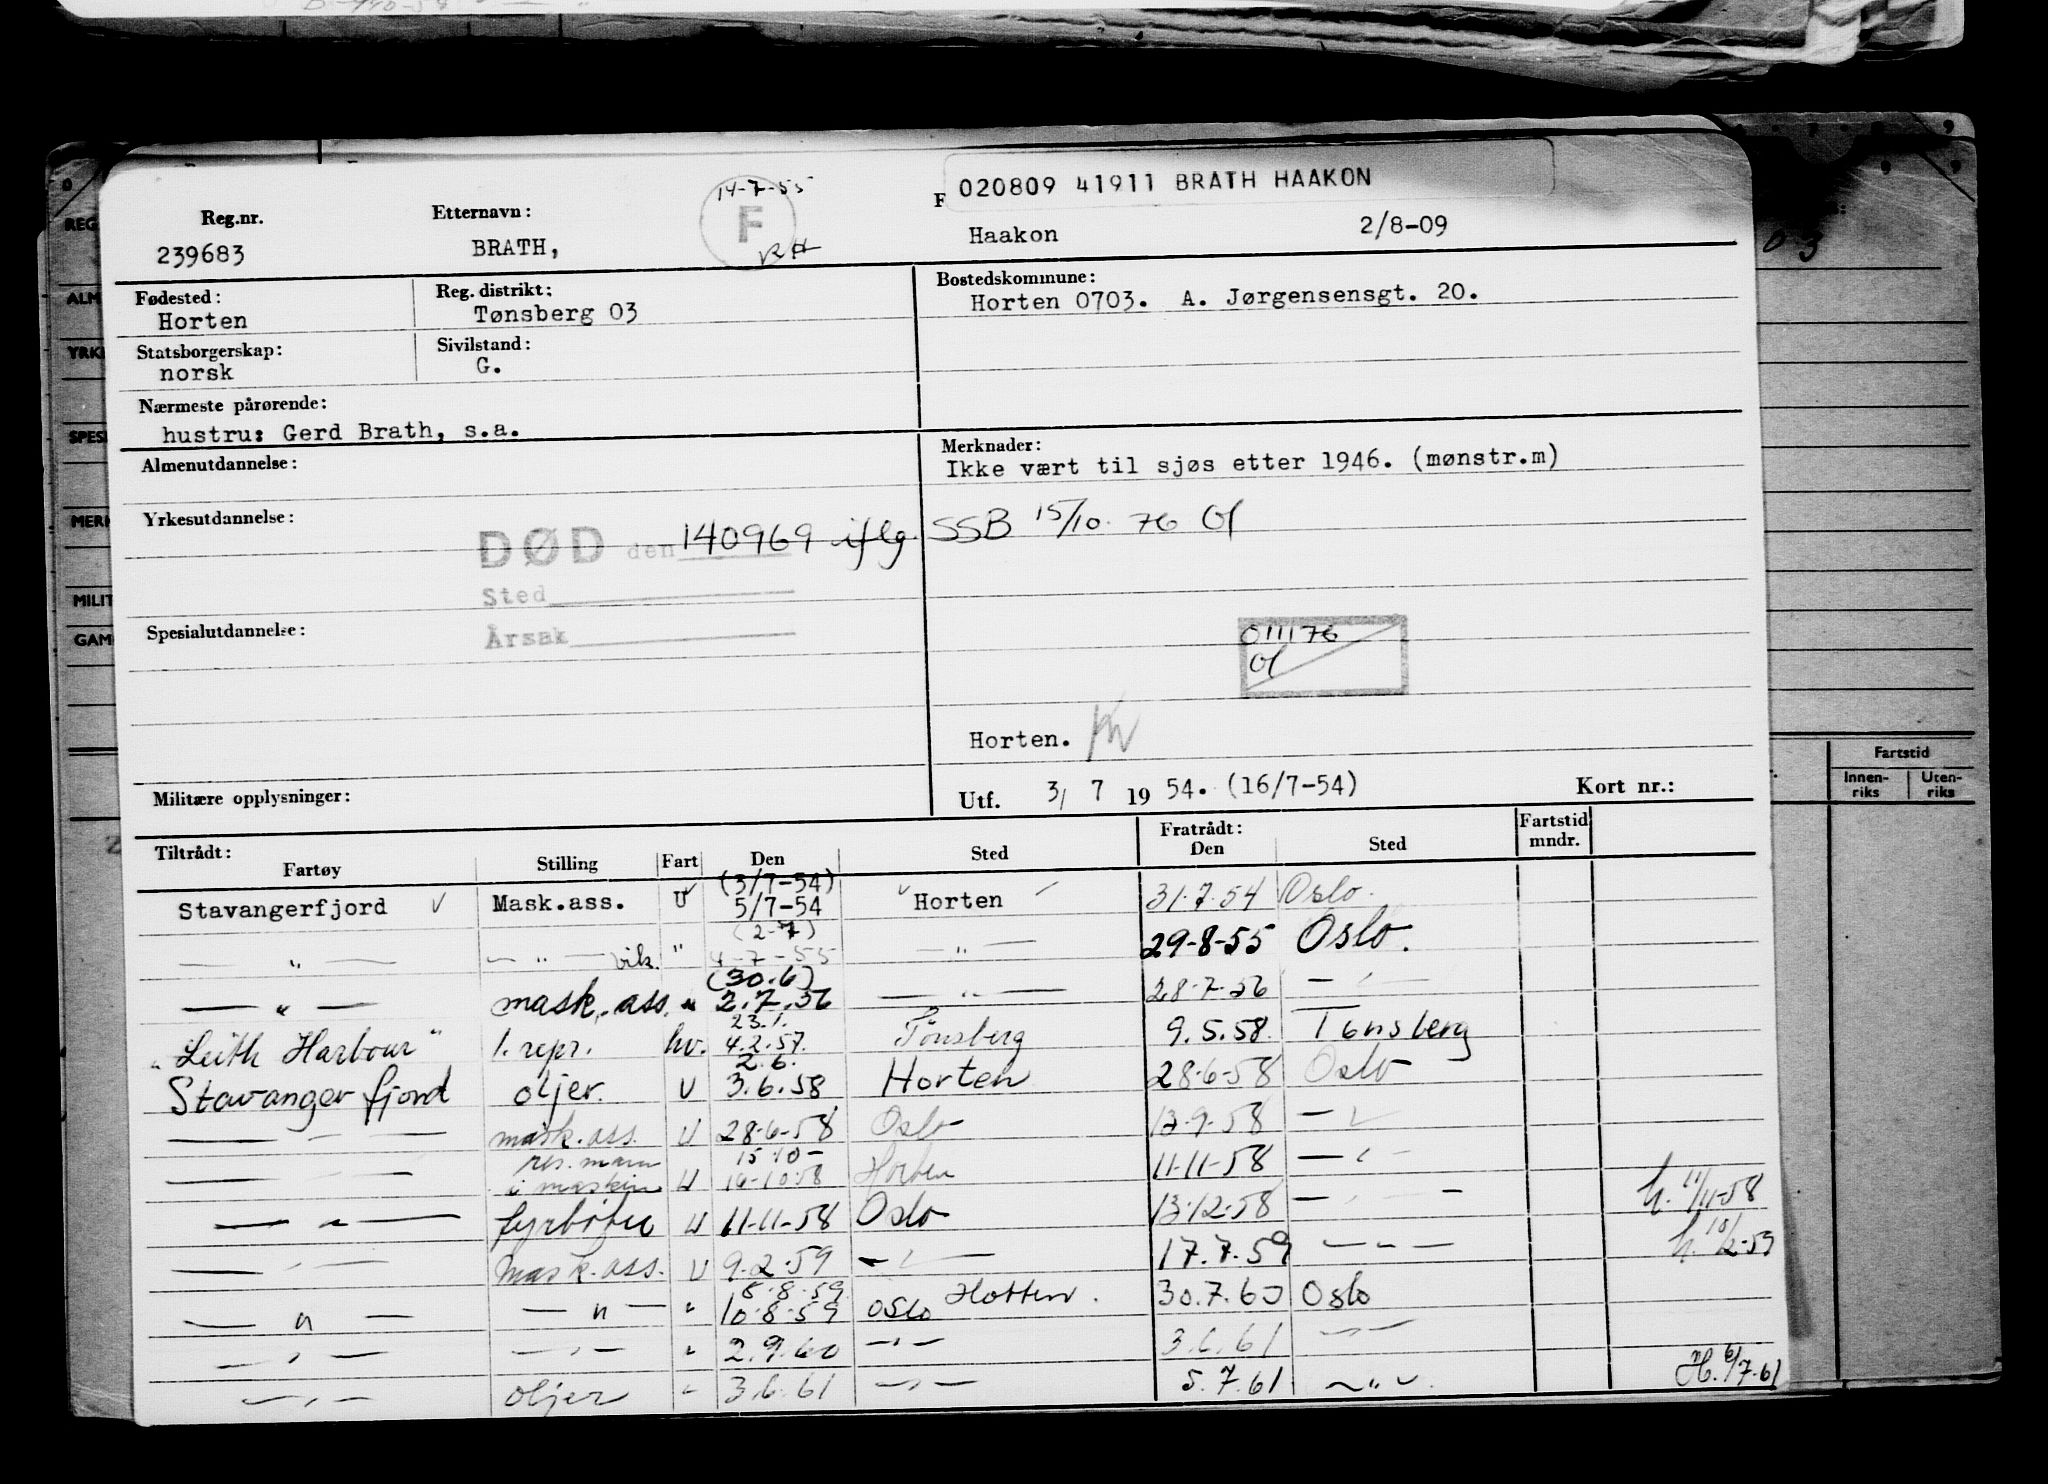 020809 41911 BRATH HAAKON
14-7-55
F
Reg.nr. Etternavn: F
239683 BRATH, Haakon 2/8-09
Fødested: Reg. distrikt: Bostedskommune:
Horten Tønsberg 03 Horten 0703. A. Jørgensensgt. 20.
Statsborgerskap: Sivilstand:
norsk G.
Nærmeste pårørende:
hustru: Gerd Brath, s.a.
Almenutdannelse: Merknader:
Ikke vært til sjøs etter 1946. (mønstr.m)
Yrkesutdannelse:
DØD den 140969 iflg. SSB 15/10. 76
Sted
Spesialutdannelse: Årsak
011176
Horten.
Militære opplysninger: Utf. 3/ 7 19 54. (16/7-54) Kort nr.:
Tiltrådt: Fratrådt: Fartstid
Fartøy Stilling Fart Den Sted Den Sted mndr.
(3/7-54)
Stavangerfjord Mask.ass. U 5/7-54 Horten 31.7.54 Oslo.
(2-7)
— " — — " — vik. " 4-7-55 — " — 29-8-55 Oslo.
(30.6)
— " — mask. ass. " 2.7.56 — " — 28.7.56 — " —
23.1.
"Leith Harbour" 1. repr. hv. 4.2.57. Tønsberg 9.5.58. Tønsberg
2.6.
Stavangerfjord oljer. U 3.6.58 Horten 28-6-58 Oslo
— " — mask.ass. U 28-6-58 Oslo 13-9-58 — " —
res. mann 15.10-
— " — i maskin U 16-10-58 Horten 11-11-58 — " —
— " — fyrbøter U 11-11-58 Oslo 13-12-58 — " — h. 11/11-58
— " — Mask.ass. U 9.2.59 — " — 17.7.59 — " — h. 10/2-59
8.8.59 Horten.
— " — — " — " 10-8-59 OSLO 30.7.60 Oslo
— " — — " — " 2.9.60 — " — 3.6.61 — " —
— " — oljer " 3.6.61 — " — 5.7.61 — " — H. 6/7.61
REG
ALM
YRK
SPES
MERK
MILIT
GAM
03
Fartstid
Innen-riks Uten-riks